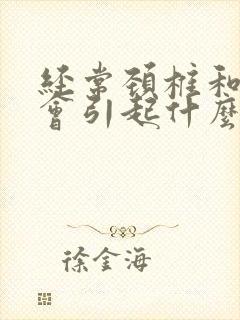 經常頚椎和
會引起什麽
徐金海